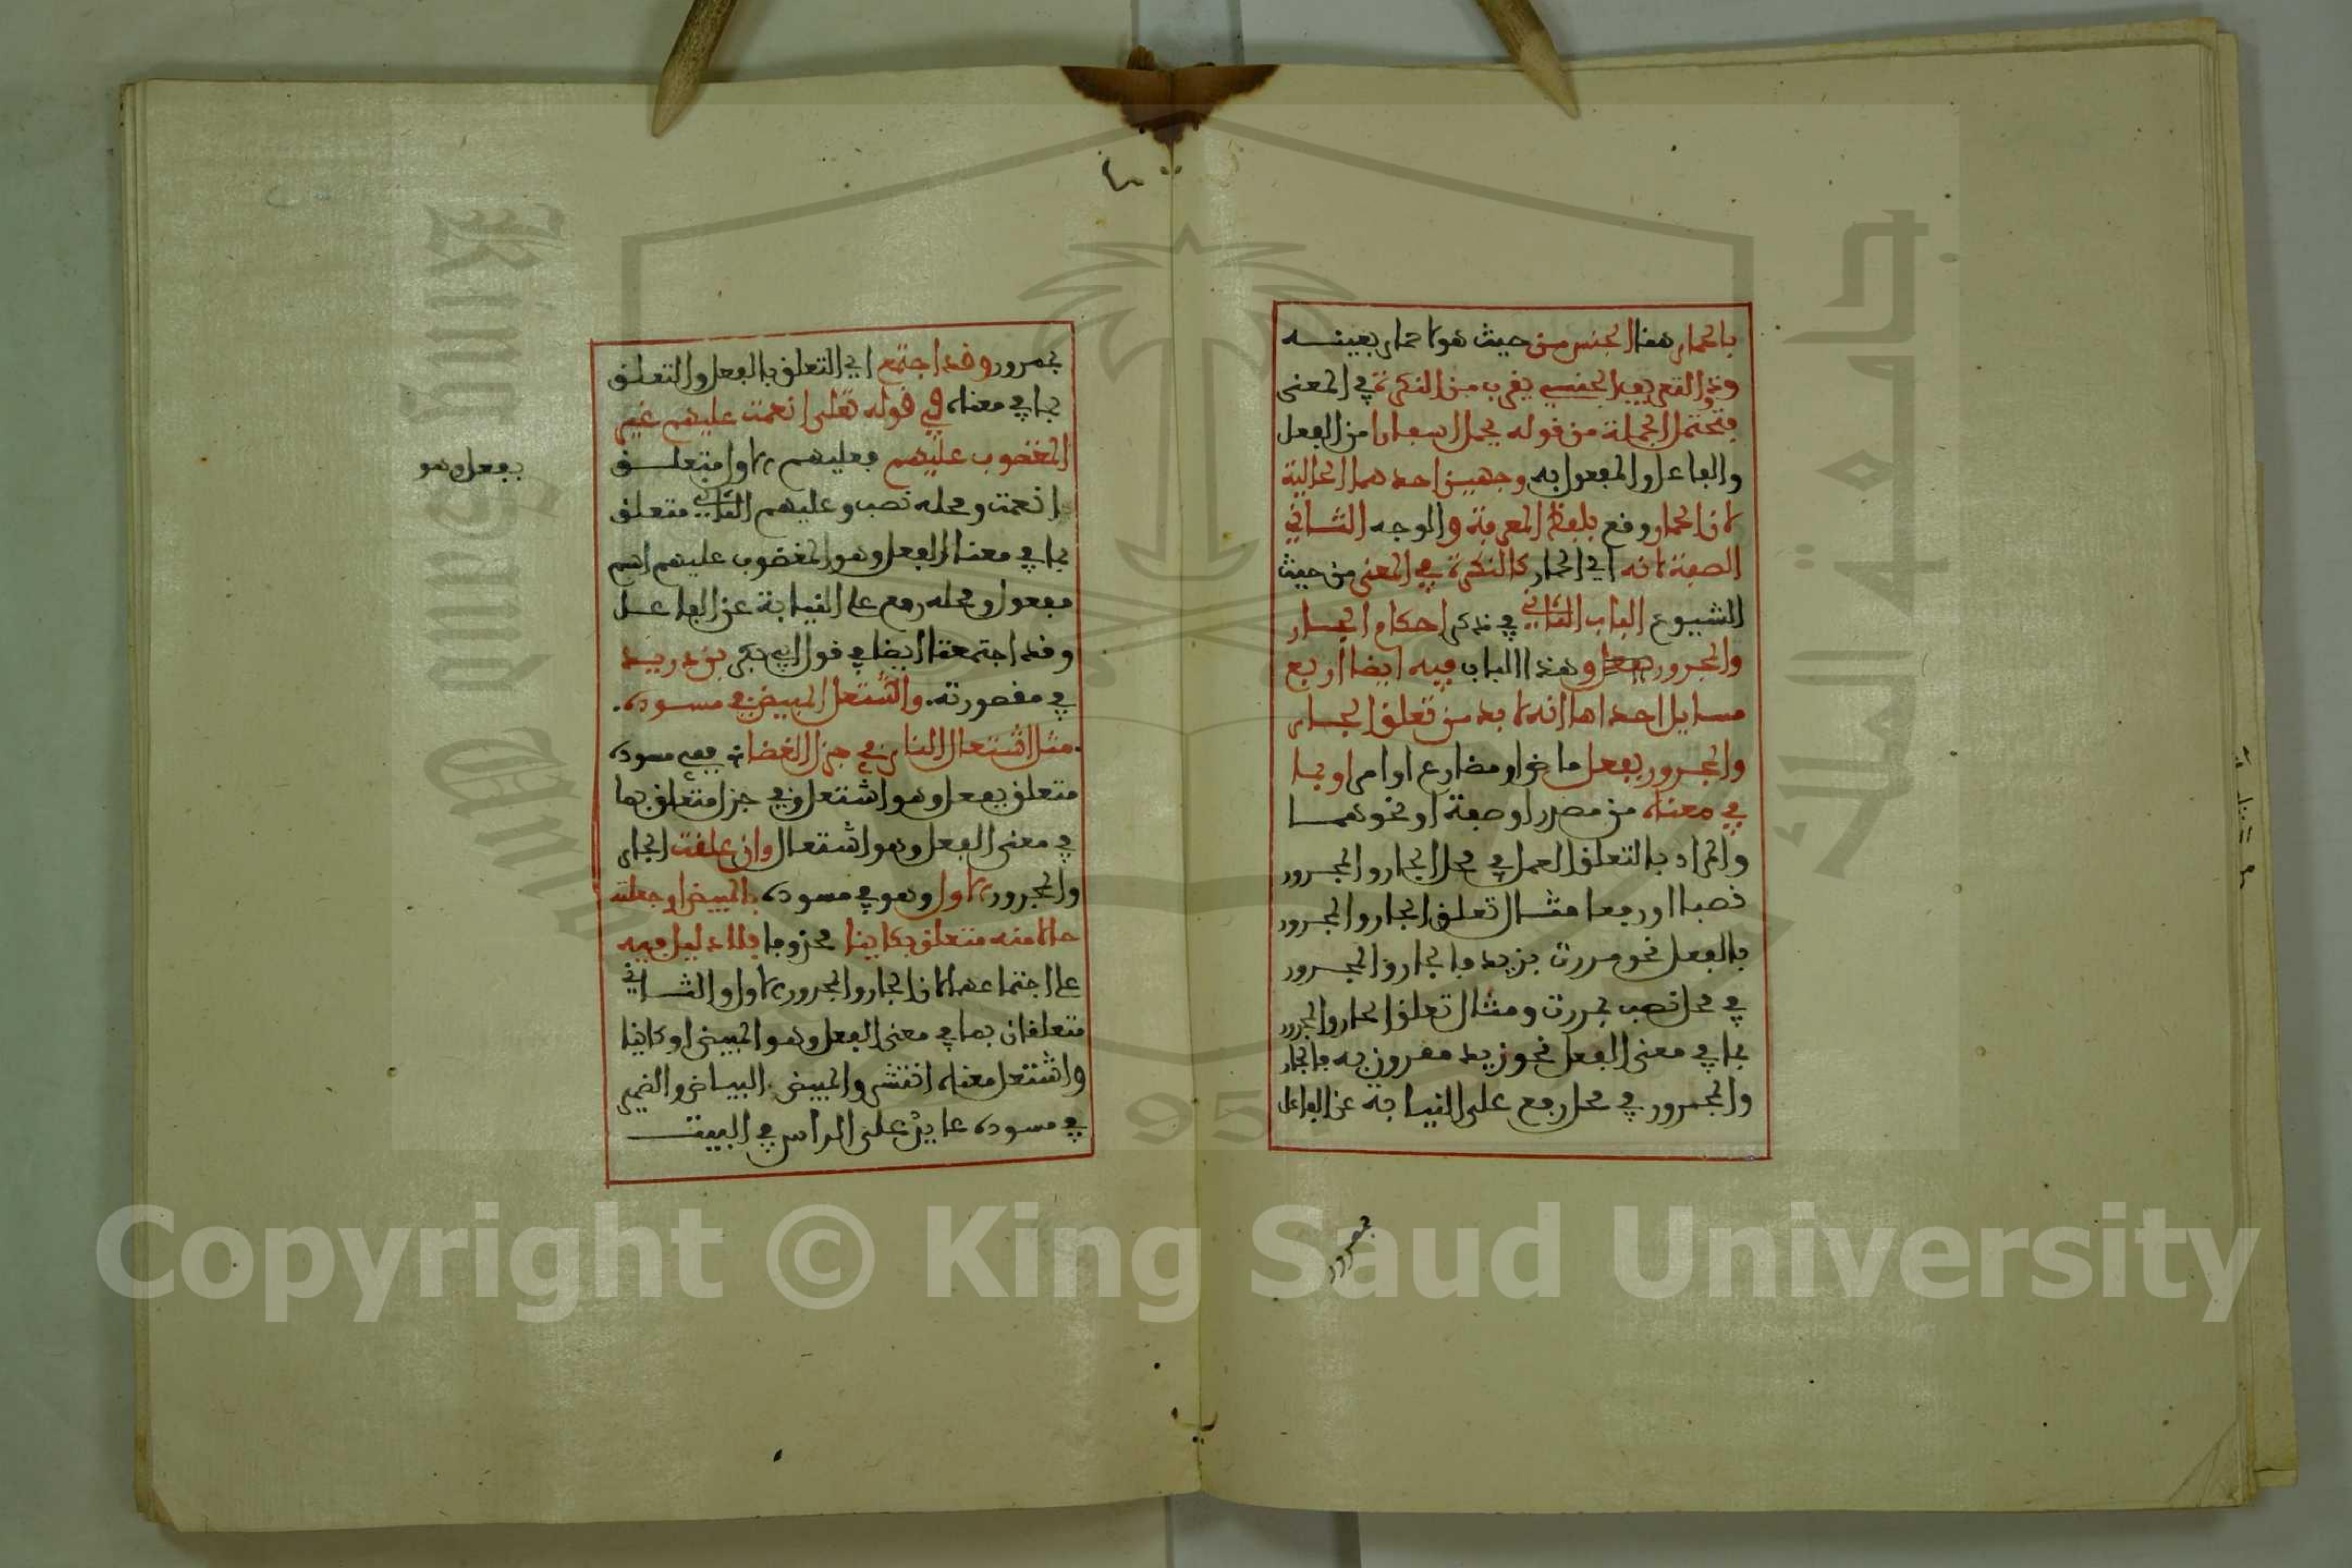 بالحمار هنا الجنس من حيث هو لا حمار بعينـه
وذو التعريف الجنسي يقرب من النكرة في المعنى
فتحتمل الجملة من قوله يحمل اسفارا من الفعل
والفاعل والمفعول به وجهين احدهما الحالية
لان الحمار وقع بلفظ المعرفة والوجه الثـاني
الصفة لانه اي الحمار كالنكرة في المعنى من حيث
الشيوع الباب الثاني في ذكر احكام الجـار
والمجرور وهذا الباب فيه ايضا اربع
مسايل احداها انه لا بد من تعلق الجـار
والمجـرور بفعل ماض او مضارع او امر او بما
في معناه من مصدر او صفة او نحوهمـا
والمراد بالتعلق العمل في محل الجار والمجـرور
نصبا او رفعا مثـال تعلـق الجار والمجـرور
بالفعل نحو مررت بزيد فالجار والمجـرور
في محل نصب بمررت ومثال تعلق الجار والمجرور
بما في معنى الفعل نحو زيد ممرور به فالجار
والمجرور في محل رفع على النيابة عن الفاعل
بممرور
بممرور وقد اجتمع اي التعلق بالفعل والتعلـق
بما في معناه في قوله تعلى انعمت عليهم غير
المغضوب عليهم فعليهم الاول متعلـق
بفعل وهو
انعمت ومحله نصب وعليهم الثاني متعلق
بما في معنا الفعل وهو المغضوب عليهم اسم
مفعول ومحله رفع على النيابة عن الفاعـل
وقد اجتمعتا ايضا في قول ابي بكر بن دريـد
في مقصورته . واشتعل المبيض في مسـوده .
. مثل اشتعال النار في جزل الغضا ففي مسوده
متعلق بفعل وهو اشتعل وفي جزل متعلق بما
في معنى الفعل وهو اشتعال وان علقت الجار
والمجرور الاول وهو في مسوده بالمبيض او جعلته
حالا منه متعلق بكاينا محذوفا فلا دليل فيه
على اجتماعهما لان الجار والمجرور الاول والثـاني
متعلقان بما في معنى الفعل وهو المبيض او كاينا
واشتعل معناه انتشر والمبيض البياض والضمير
في مسوده عايد على الراس في البيتـ
Copyright © King Saud University